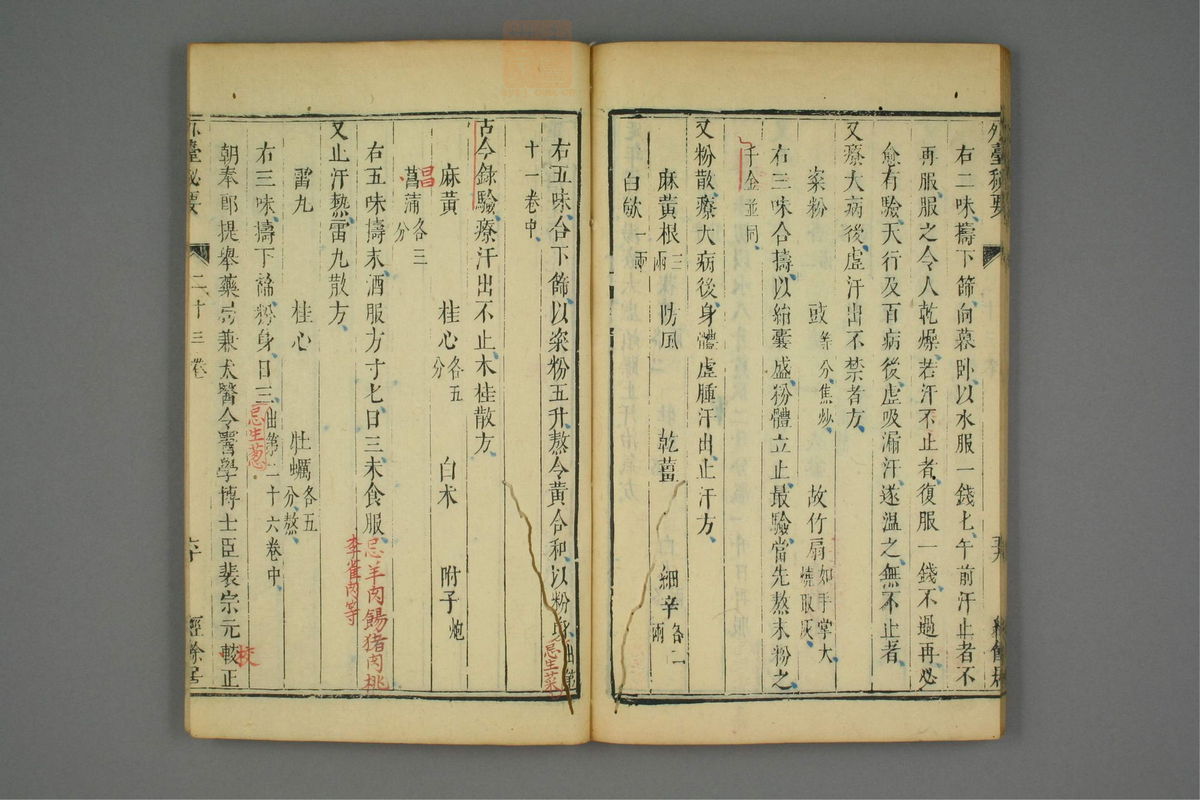 外臺秘要
右二味擣下篩向暮臥以水服一錢匕午前汗止者不
再服服之令人乾燥若汗不止者復服一錢不過再必
愈有驗天行及百病後虛吸漏汗遂溫之無不止者
又療大病後虛汗出不禁者方
粢粉 豉等分焦炒 故竹扇如手掌大燒取灰
右三味合擣以絹囊盛粉體立止最驗當先熬末粉之
千金並同
又粉散療大病後身體虛腫汗出止汗方
麻黃根三兩 防風 乾薑 細辛各二兩
白蘞一兩
右五味合下篩以粢粉五升熬令黃合和以粉身出第
忌生菜
十一卷中
古今錄驗療汗出不止木桂散方
麻黃 桂心各五分 白木 附子炮
菖蒲各三分
昌
右五味擣末酒服方寸匕日三末食服
忌羊肉餳猪肉桃
李雀肉等
又止汗熱雷九散方
雷九 桂心 牡蠣各五分熬
右三味擣下篩粉身日三出第一十六卷中
忌生葱
朝奉郎提舉藥局兼太醫令醫學博士臣裴宗元較正
校
外臺秘要 二十三卷 六十 經餘居